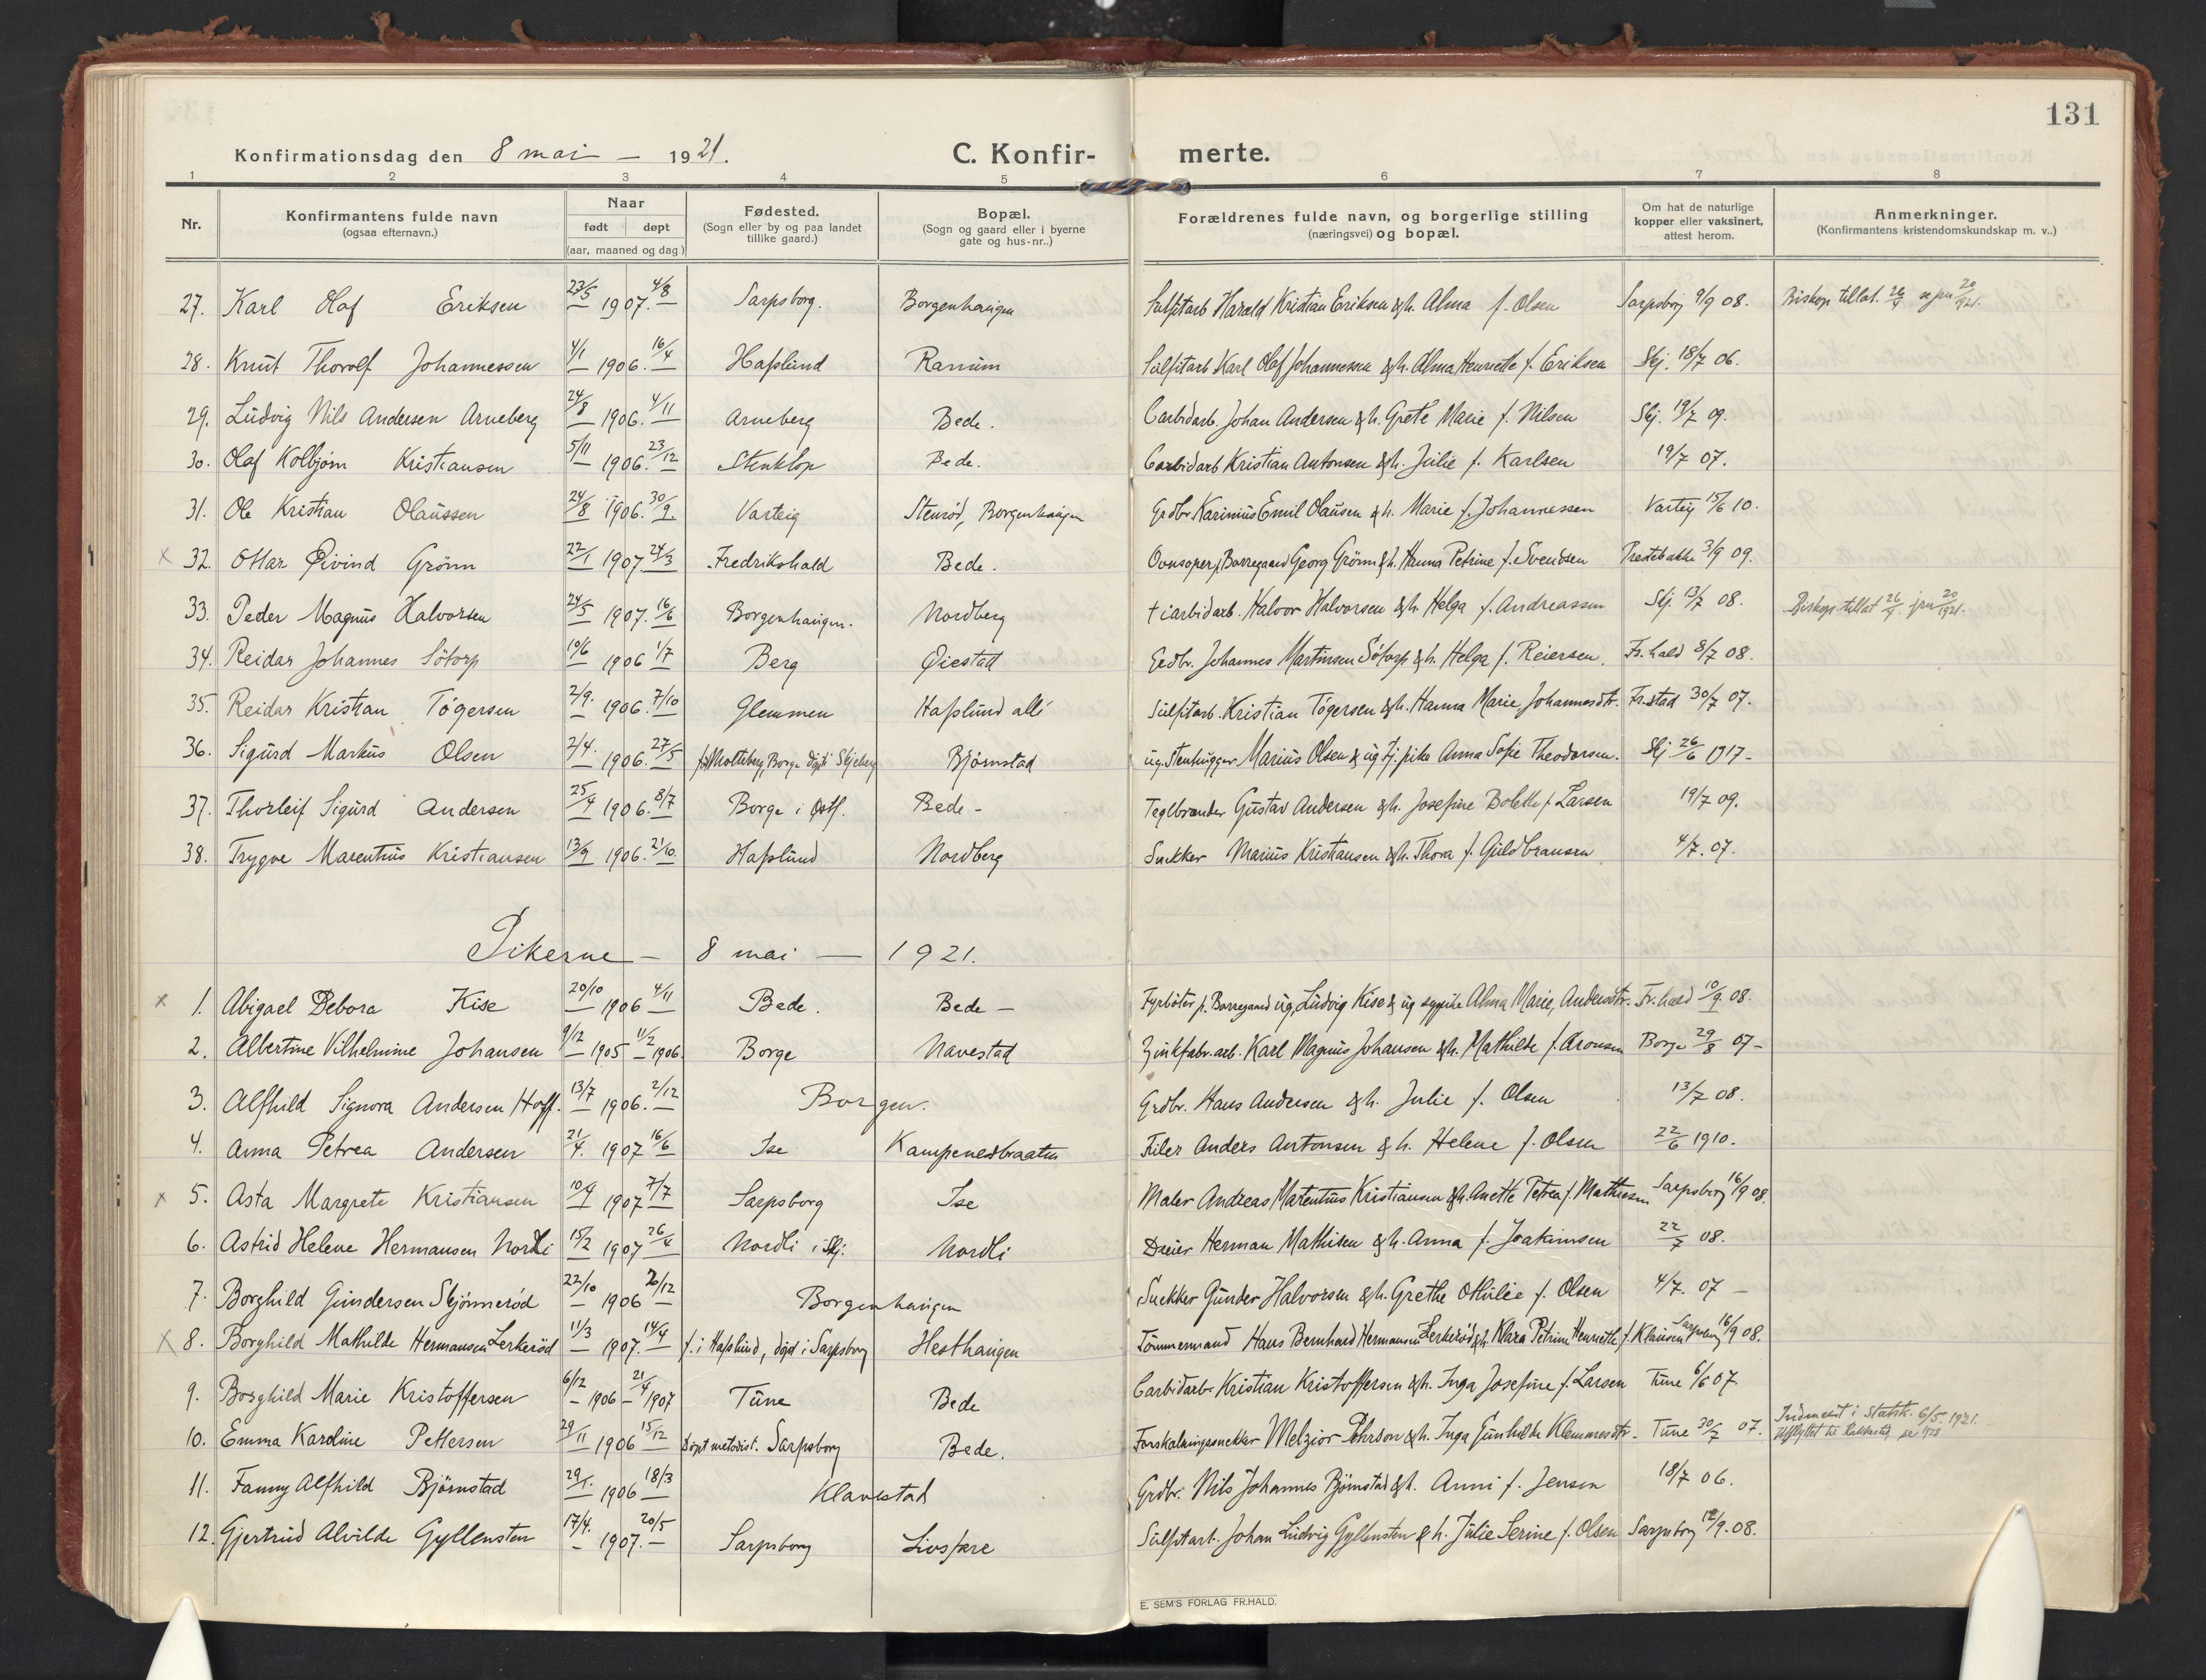 131
Konfirmationsdag den 8 mai — 1921. C. Konfir- merte.
1 2 3 4 5 6 7 8
Nr. Konfirmantens fulde navn (ogsaa efternavn.) Naar født døpt (aar, maaned og dag.) Fødested. (Sogn eller by og paa landet tillike gaard.) Bopæl. (Sogn og gaard eller i byerne gate og hus-nr..) Forældrenes fulde navn, og borgerlige stilling (næringsvei) og bopæl. Om hat de naturlige kopper eller vaksinert, attest herom. Anmerkninger. (Konfirmantens kristendomskundskap m. v..)
27. Karl Olaf Eriksen 23/5 1907. 4/8 Sarpsborg. Borgenhaugen Sulfitarb Harald Kristian Eriksen & h. Alma f. Olsen Sarpsborg 9/9 08. Biskop tillat. 26/4 20/1921.
28. Knut Thorolf Johannessen 4/1 1906. 16/4 Hafslund Ranum Sulfitarb Karl Olaf Johannessen & h. Alma Henriette f. Eriksen Skj. 18/7 06.
29. Ludvig Nils Andersen Arneberg 24/8 1906. 4/11 Arneberg Bede. Carbidarb. Johan Andersen & h. Grete Marie f. Nilsen Skj. 19/7 09.
30. Olaf Kolbjørn Kristiansen 5/11 1906. 23/12 Bede. Carbidarb Kristian Antonsen & h. Julie f. Karlsen 19/7 07.
31. Ole Kristian Olaussen 24/8 1906. 30/9. Varteig Stenrød, Borgenhaugen Grdbr. Karinius Emil Olausen & h. Marie f. Johannessen Varteig 15/6 10.
x 32. Ottar Øivind Grönn 22/1 1907. 24/3 Fredrikshald Bede. Ovnsoper p. Borregaard Georg Grönn & h. Hanna Petrine f. Svendsen Prestebakke 3/9 09.
33. Peder Magnus Halvorsen 24/5 1907. 16/6 Borgenhaugen. Nordberg † Carbidarb. Halvor Halvorsen & h. Helga f. Andreassen Skj. 13/7 08. Biskop tillat 26/4. 20/1921.
34. Reidar Johannes Sötorp 10/6 1906 1/7 Berg Øiestad Grdbr. Johannes Martinsen Sötorp & h. Helga f. Reiersen. Fr.hald 8/7 08.
35. Reidar Kristian Tögersen 2/9. 1906. 7/10 Glemmen Hafslund allé Sulfitarb. Kristian Tögersen & h. Hanna Marie Johannesdtr. Fr.stad 30/7 07.
36. Sigurd Markus Olsen 2/4. 1906. 27/5 Borge døpt i Skjeberg Bjørnstad ug. Stenhugger Marius Olsen & ug. Tj.pike Anna Sofie Theodorsen. Skj. 26/6 1917-
37. Thorleif Sigurd Andersen 25/4 1906. 8/7 Borge i Østf. Bede - Teglbrænder Gustav Andersen & h. Josefine Bolette f. Larsen 19/7 09.
38. Trygve Marentius Kristiansen 13/9 1906. 21/10. Hafslund Nordberg Snekker Marius Kristiansen & h. Thora f. Guldbransen 4/7. 07.
Pikerne — 8 mai — 1921.
x 1. Abigael Debora Kise 20/10 1906 4/11 Bede. Bede — Fyrböter p. Borregaard ug. Ludvig Kise & ug sypike Alma Marie, Andersdtr. Fr.hald 10/9 08.
2. Albertine Vilhelmine Johansen 9/12 1905 11/2 1906. Borge Navestad Zinkfabr.arb. Karl Magnus Johansen & h. Mathilde f. Aronsen Borge 29/8 07-
3. Alfhild Signora Andersen Hoff. 13/7 1906. 2/12 Borgen. Grdbr. Hans Andersen & h. Julie f. Olsen 13/7 08.
4. Anna Petrea Andersen 21/4. 1907 16/6 Ise Kampenesbraaten Filer Anders Antonsen & h. Helene f. Olsen 22/6 1910.
x 5. Asta Margrete Kristiansen 10/4 1907 7/7 Sarpsborg Ise Maler Andreas Martentius Kristiansen & h. Anette Petrea f. Mathiesen Sarpsborg 16/9 08.
6. Astrid Helene Hermansen Nordli 15/2 1907 26/4 Nordli i Skj. Nordli Dreier Herman Mathisen & h. Anna f. Joakimsen 22/7 08.
7. Borghild Gundersen Skjönnerød 22/10 1906 26/12 Borgenhaugen Snekker Gunder Halvorsen & h. Grethe Othilie f. Olsen 4/7. 07 —
x 8. Borghild Mathilde Hermansen Lerkerød 11/3 1907. 14/4 f. i Hafslund, døpt i Sarpsborg Hesthaugen Tömmermand Hans Bernhard Hermansen Lerkerød & h. Klara Petrine Henriette f. Klausen Sarpsborg 16/9 08.
9. Borghild Marie Kristoffersen 6/12 1906 21/4 1907 Tune Bede Carbidarb. Kristian Kristoffersen & h. Inga Josefine f. Larsen Tune 6/6 07.
10. Emma Karoline Pettersen 29/11 1906 15/12 Døpt metodist. Sarpsborg Bede. Forskalningssnekker Melzior Pehrson & h. Inga Gunhilde Klemmesdtr. Tune 30/7 07. Indmeldt i Statsk. 6/5. 1921. Utflyttet til
11. Fanny Alfhild Bjørnstad 29/1. 1906 18/3 Klavestad Grdbr. Nils Johannes Bjørnstad & h. Anni f. Jensen 18/7 06.
12. Gjertrud Alvilde Gyllensten 17/4. 1907. 20/5 Sarpsborg Sulfitarb. Johan Ludvig Gyllensten & h. Julie Serine f. Olsen Sarpsborg 12/9. 08.
E. SEM'S FORLAG FR.HALD.